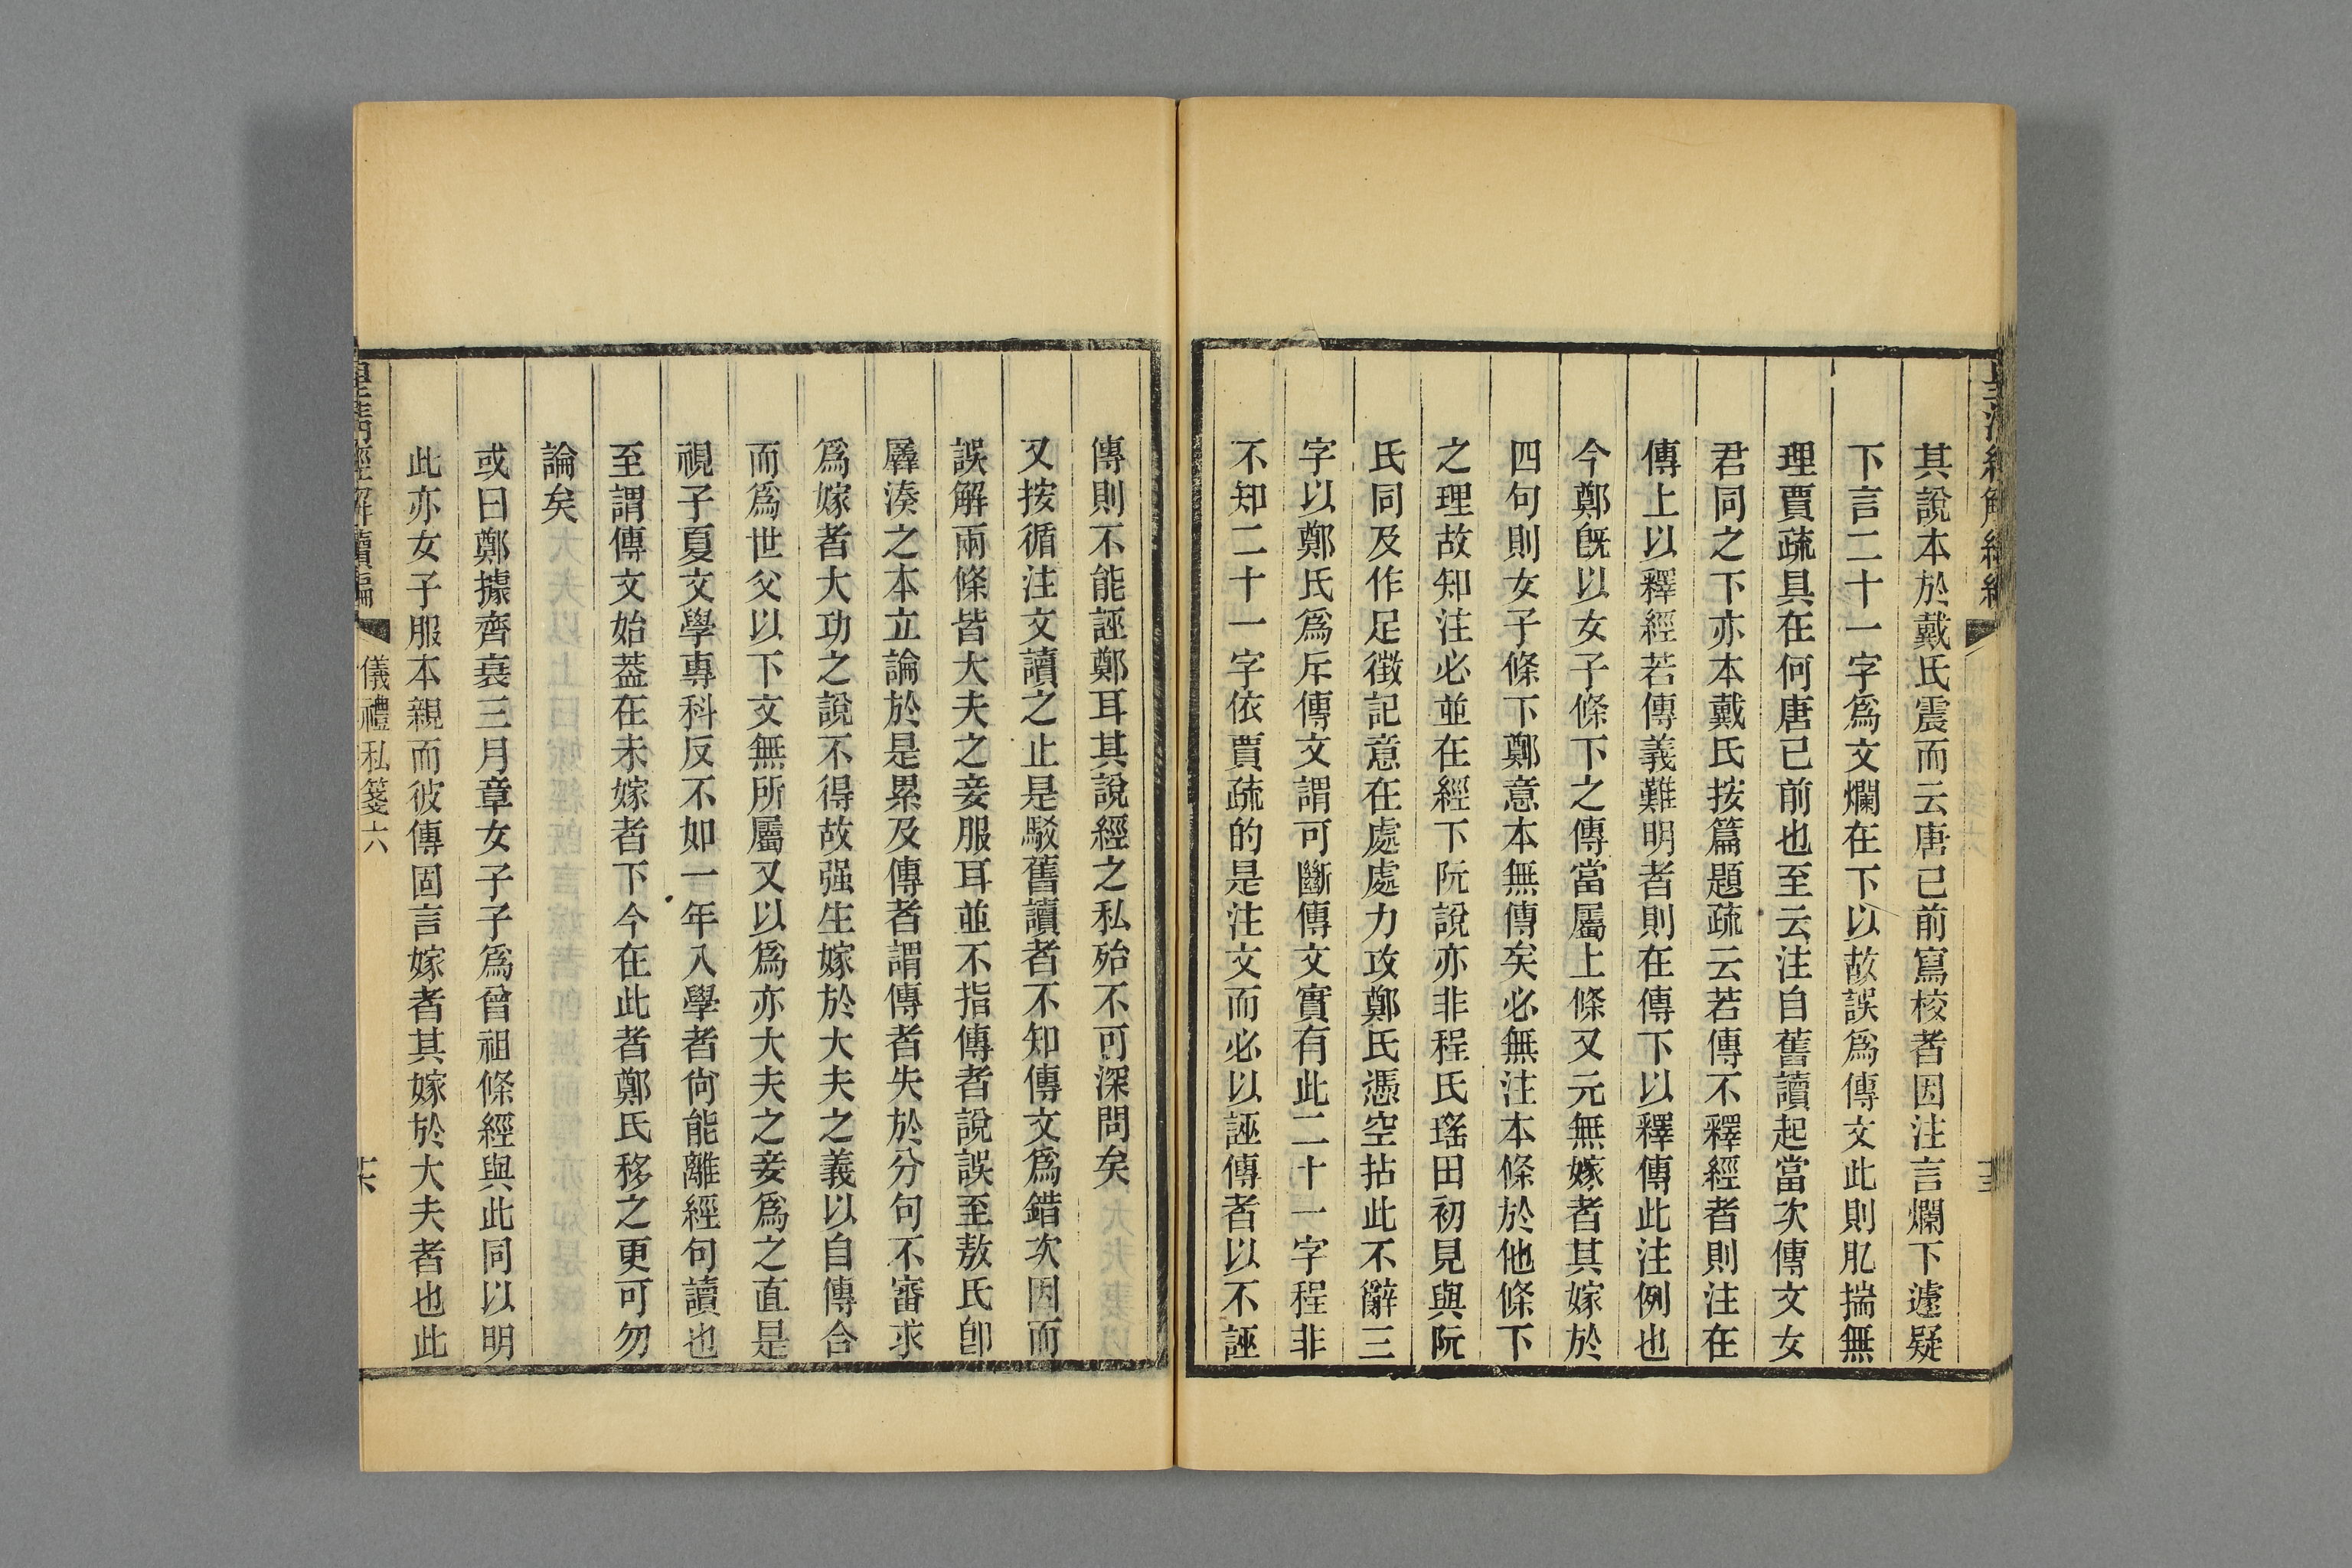 其說本於戴氏震而云唐已前寫校者因注言爛下遽疑
下言二十一字爲文爛在下以故誤爲傳文此則肊揣無
理賈疏具在何唐已前也至云注自舊讀起當次傳文女
君同之下亦本戴氏按篇題疏云若傳不釋經者則注在
傳上以釋經若傳義難明者則在傳下以釋傳此注例也
今鄭旣以女子條下之傳當屬上條又元無嫁者其嫁於
四句則女子條下鄭意本無傳矣必無注本條於他條下
之理故知注必並在經下阮說亦非程氏瑤田初見與阮
氏同及作足徵記意在處處力攻鄭氏憑空拈此不辭三
字以鄭氏爲斥傳文謂可斷傳文實有此二十一字程非
不知二十一字依賈疏的是注文而必以誣傳者以不誣
傳則不能誣鄭耳其說經之私殆不可深問矣
又按循注文讀之止是駁舊讀者不知傳文爲錯次因而
誤解兩條皆大夫之妾服耳並不指傳者說誤至敖氏卽
羼湊之本立論於是累及傳者謂傳者失於分句不審求
爲嫁者大功之說不得故强生嫁於大夫之義以自傳合
而爲世父以下文無所屬又以爲亦大夫之妾爲之直是
視子夏文學專科反不如一年入學者尙能離經句讀也
至謂傳文始葢在未嫁者下今在此者鄭氏移之更可勿
論矣
或曰鄭據齊衰三月章女子子爲曾祖條經與此同以明
此亦女子服本親而彼傳固言嫁者其嫁於大夫者也此
皇淸經解續編
儀禮私箋六